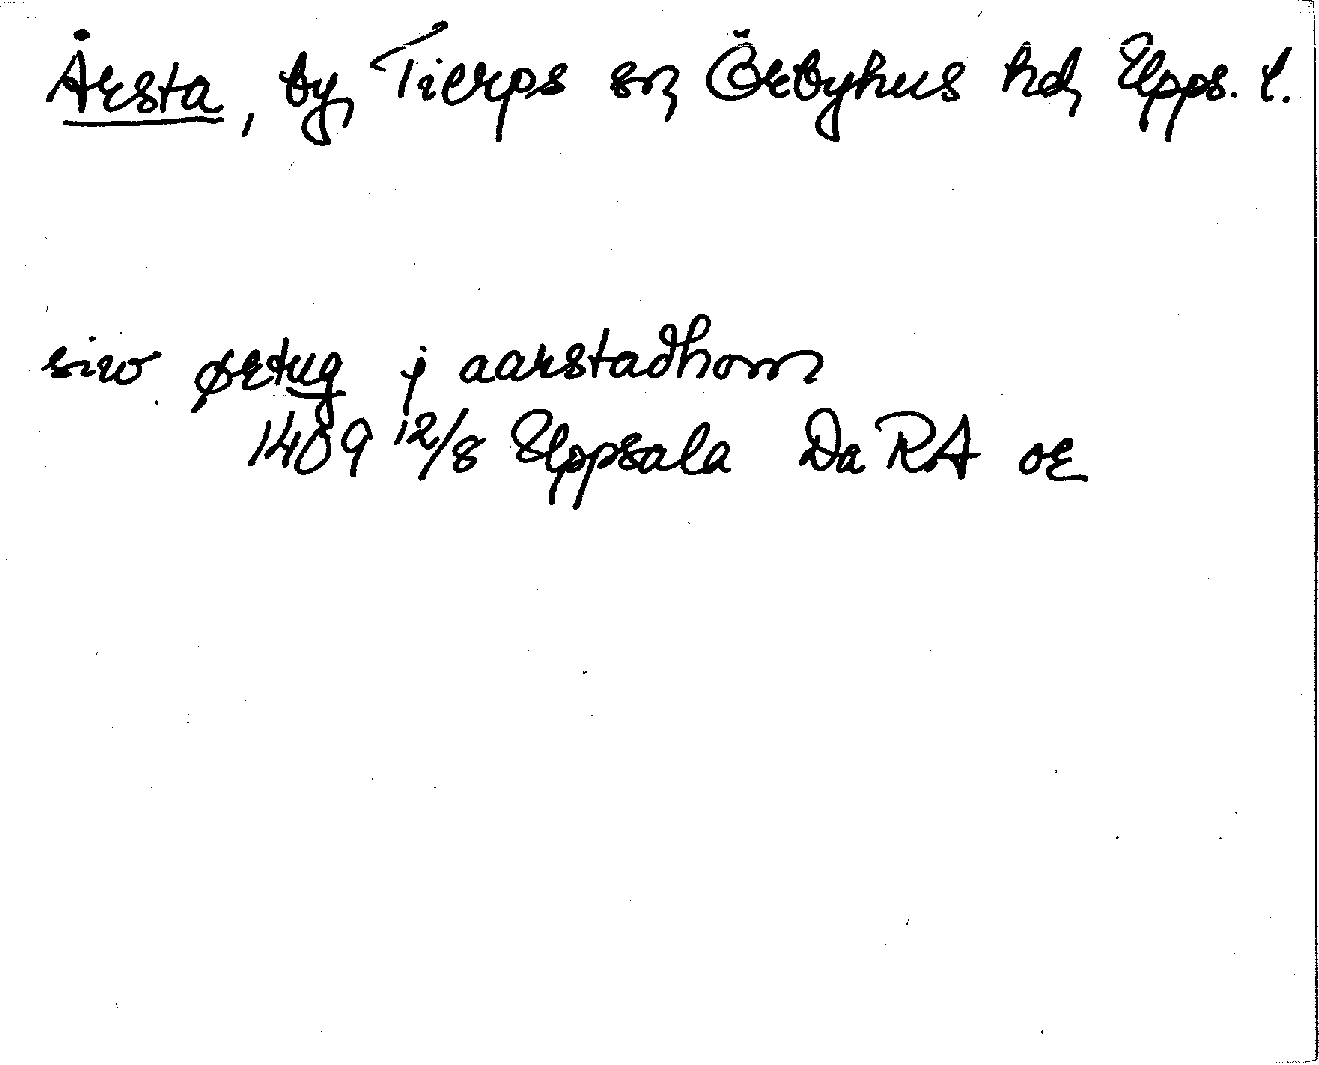 Årsta, by, Tierps sn, Örbyhus hd, Upps. l.
siw ørtug j aarstadhom
1409 12/8 Uppsala Da RA or